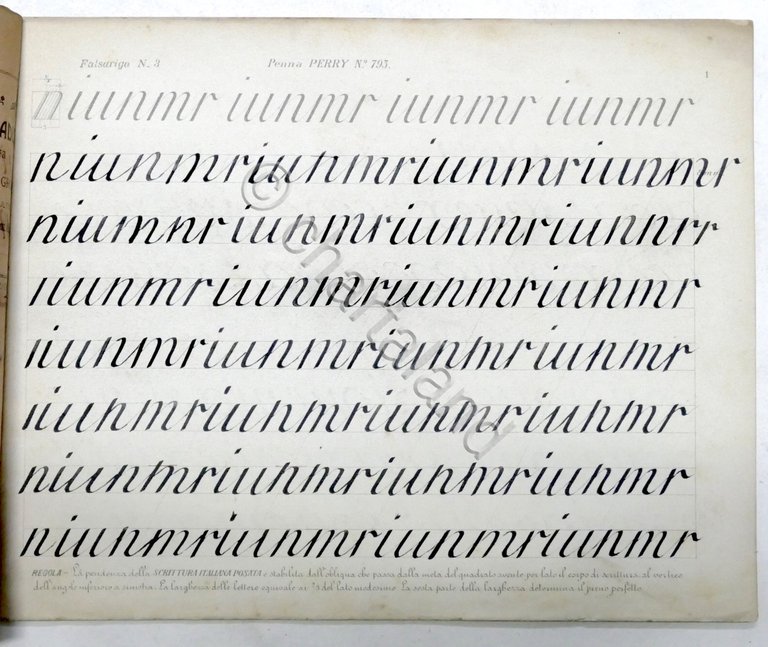 Falsarigo N. 3 Penna PERRY Nº 795. 1
niunmr iuunmr iuunmr iuunmr
niunmriunmriunmriunmr
niumnriunmriunmriunrr
iiunmriunmriunmriunmr
iiunmriunmriunmriunmr
niunmriunmriunmriunmr
niunmriunmriunmriunmr
niunmriunmriunmriunmr
REGOLA – La pendenza della SCRITTURA ITALIANA POSATA è stabilita dall'obliqua che passa dalla metà del quadrato avente per lato il corpo di scrittura al vertice
dell'angolo inferiore a sinistra. La larghezza delle lettere equivale ai ⅔ del lato medesimo. La sesta parte della larghezza determina il pieno perfetto.
© chartaland